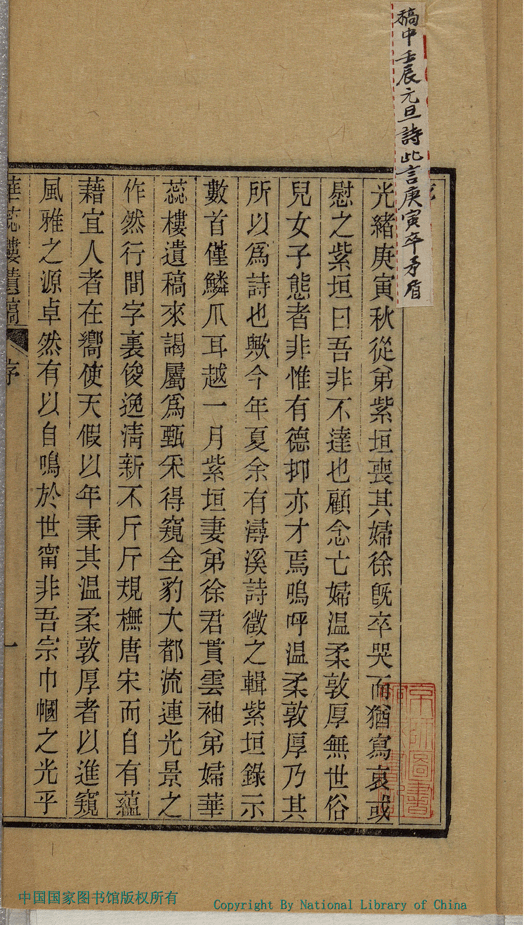 稿中壬辰元旦詩此言庚寅卒矛盾
序
光緒庚寅秋從弟紫垣喪其婦徐旣卒哭而猶寫哀或
慰之紫垣曰吾非不達也顧念亡婦溫柔敦厚無世俗
兒女子態者非惟有德抑亦才焉嗚呼溫柔敦厚乃其
所以爲詩也歟今年夏余有潯溪詩徵之輯紫垣錄示
數首僅鱗爪耳越一月紫垣妻弟徐君貫雲袖弟婦華
蕊樓遺稿來謁屬爲甄采得窺全豹大都流連光景之
作然行間字裏俊逸清新不斤斤規橅唐宋而自有蘊
藉宜人者在嚮使天假以年秉其溫柔敦厚者以進窺
風雅之源卓然有以自鳴於世甯非吾宗巾幗之光乎
華蕊樓遺稿 序 一
京師圖書
中国国家图书馆版权所有
Copyright By National Library of China